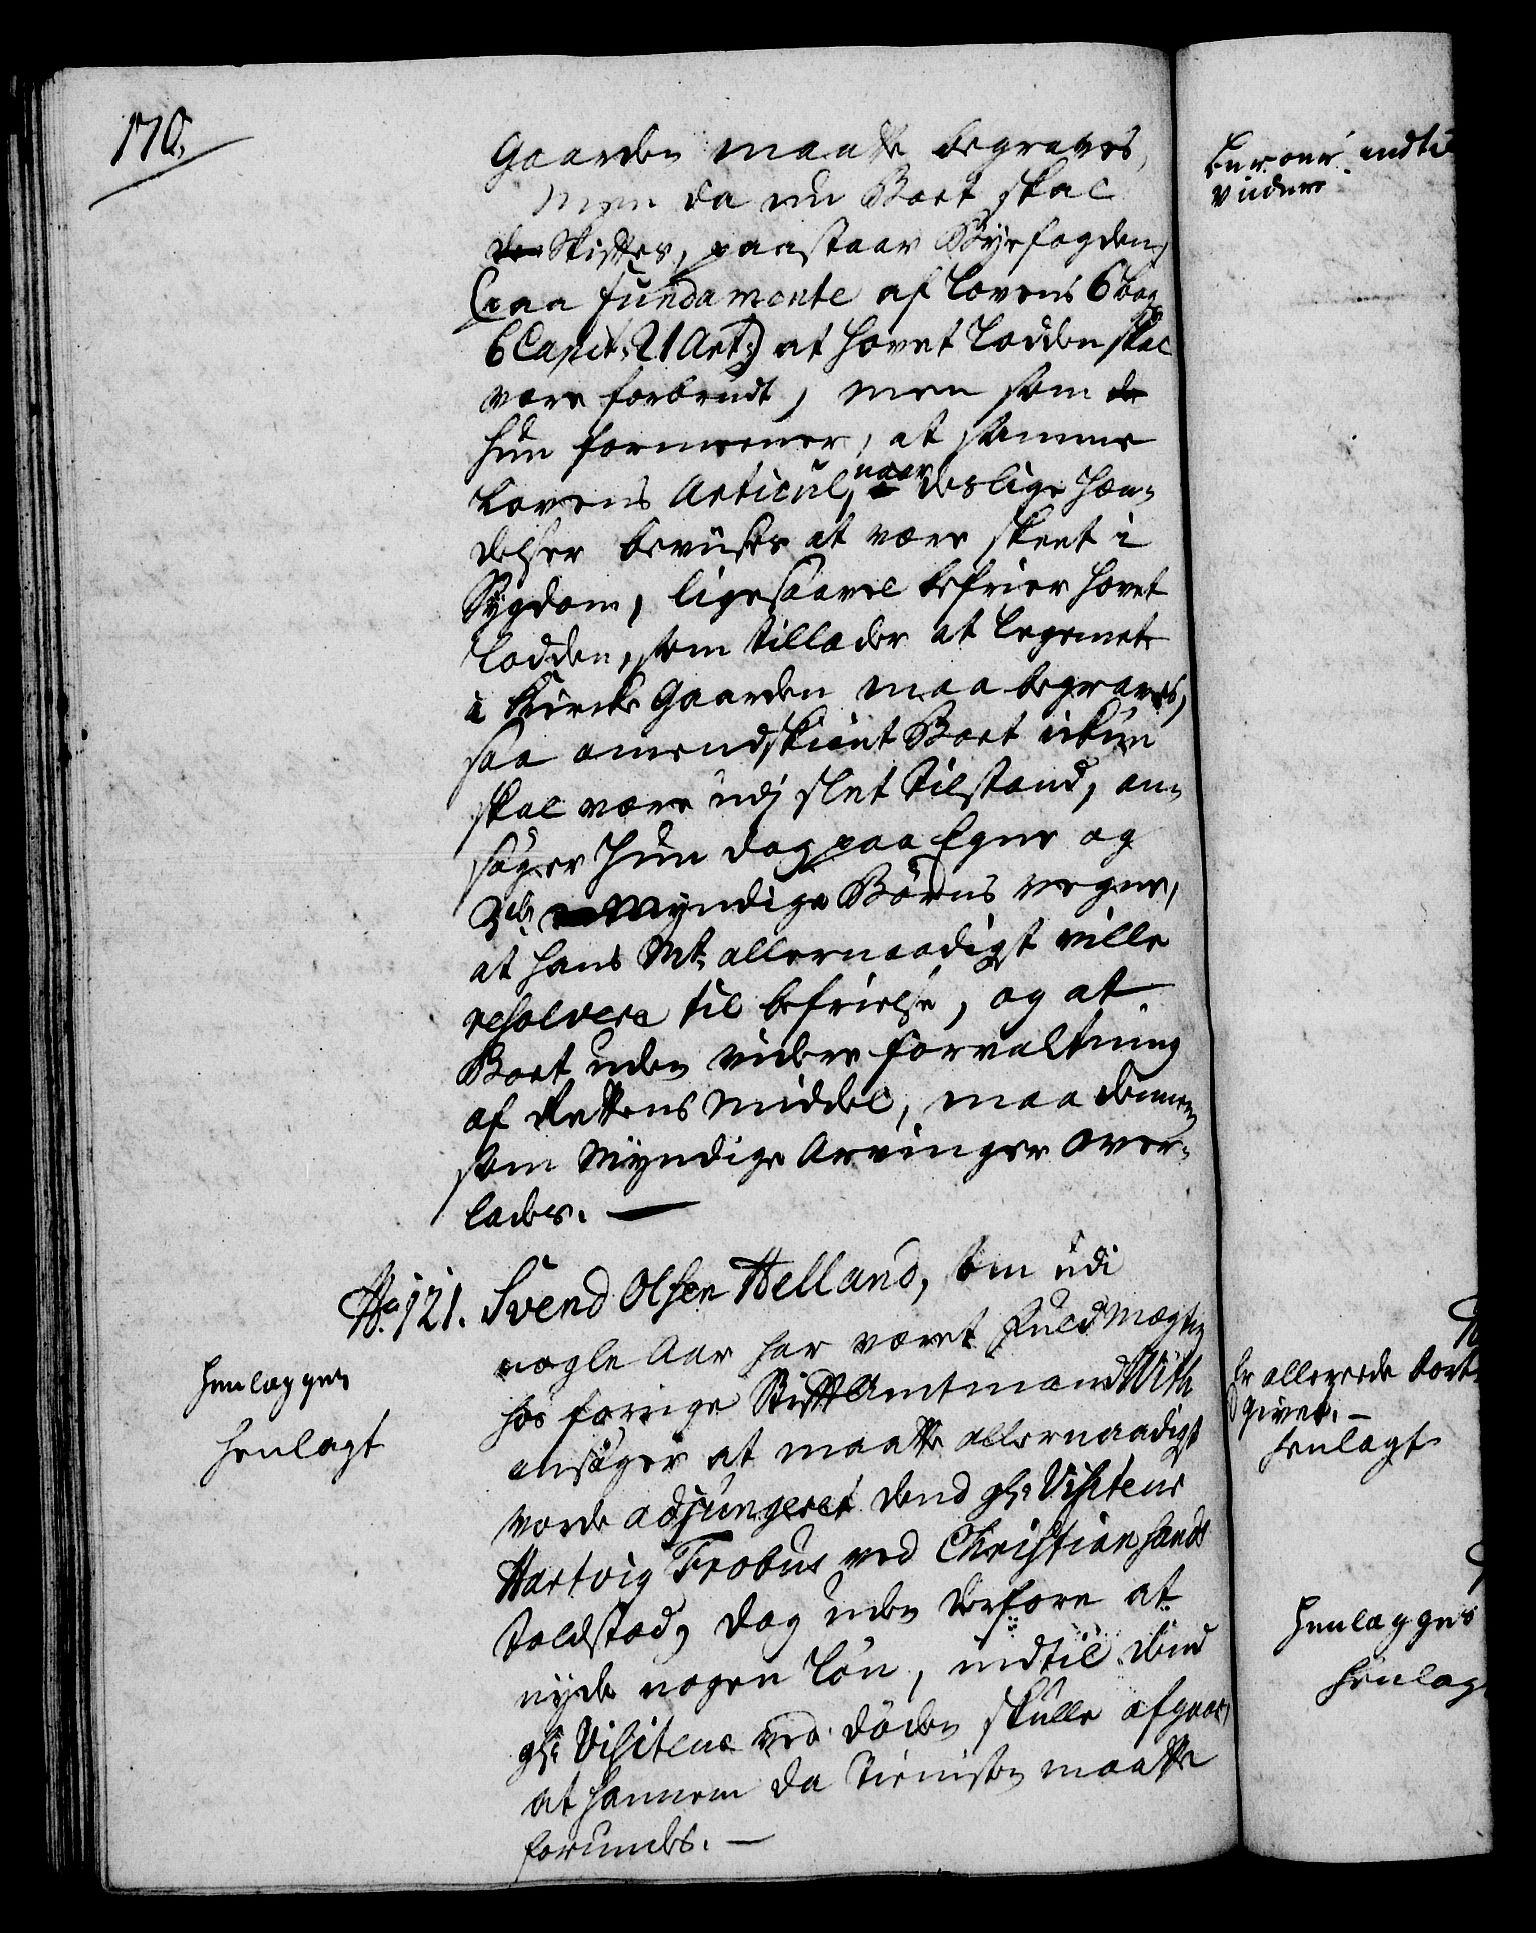 170.
Gaarden maatte begraves,
Men da nu Boet skal
de Skiftes, paastaar Byefogden,
(paa fundamente af Lovens 6 bog
6 Capit: 21 Art:) at hovet Lodden skal
være forbrudt, men som de
hun formeener, at samme
Lovens Articul, naar deslige hæn-
delser beviises at være skeet i
Sygdom, ligesaavel befrier hovet
Lodden, som tillader at legemet
i Kircke Gaarden maa begraves,
saa omendskiønt Boet ickun
skal være udj slet tilstand, an-
søger Hun dog paa Egne og
Myndige Børns vegne,
at hans Mt: allernaadigst ville
resolvere til befrielse, og at
Boet uden videre forvaltning
af Rettens Middel, maa dennem
som Myndige Arvinger over-
lades. —
No 121. Svend Olsen Helland, som udi
nogle Aar har været Fuldmægtig
hos forrige Stift Amtmand With
ansøger at maatte allernaadigst
vorde adjungeret dend gl: Visiteur
Hartvig Frobus ved Christiansands
Toldsted, dog uden derfore at
nyde nogen Løn, indtil dend
gl: Visiteur ved døden skulle afgaae,
at hannem da Tienisten maatte
forundes. —
henlegges
henlagt
indtil
viidere
Er allerede bort
givet. —
henlagt
Henlegges
henlag